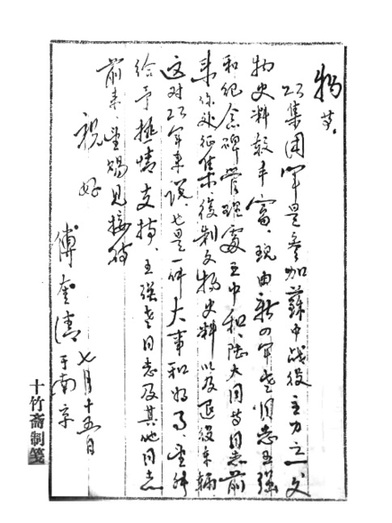 23集团军是参加苏中战役主力之一,文
物史料较丰富,现由新四军老同志王强
和纪念碑管理处王中和、陆大同等同志前
来你处征集、复制文物史料以及退役车辆,
这对23军来说,也是一件大事和好事,望能
给予热情支持,王强老同志及其他同志
前来,望赐见接待
祝好
傅奎清于南京
七月十五日
十竹斋制笺